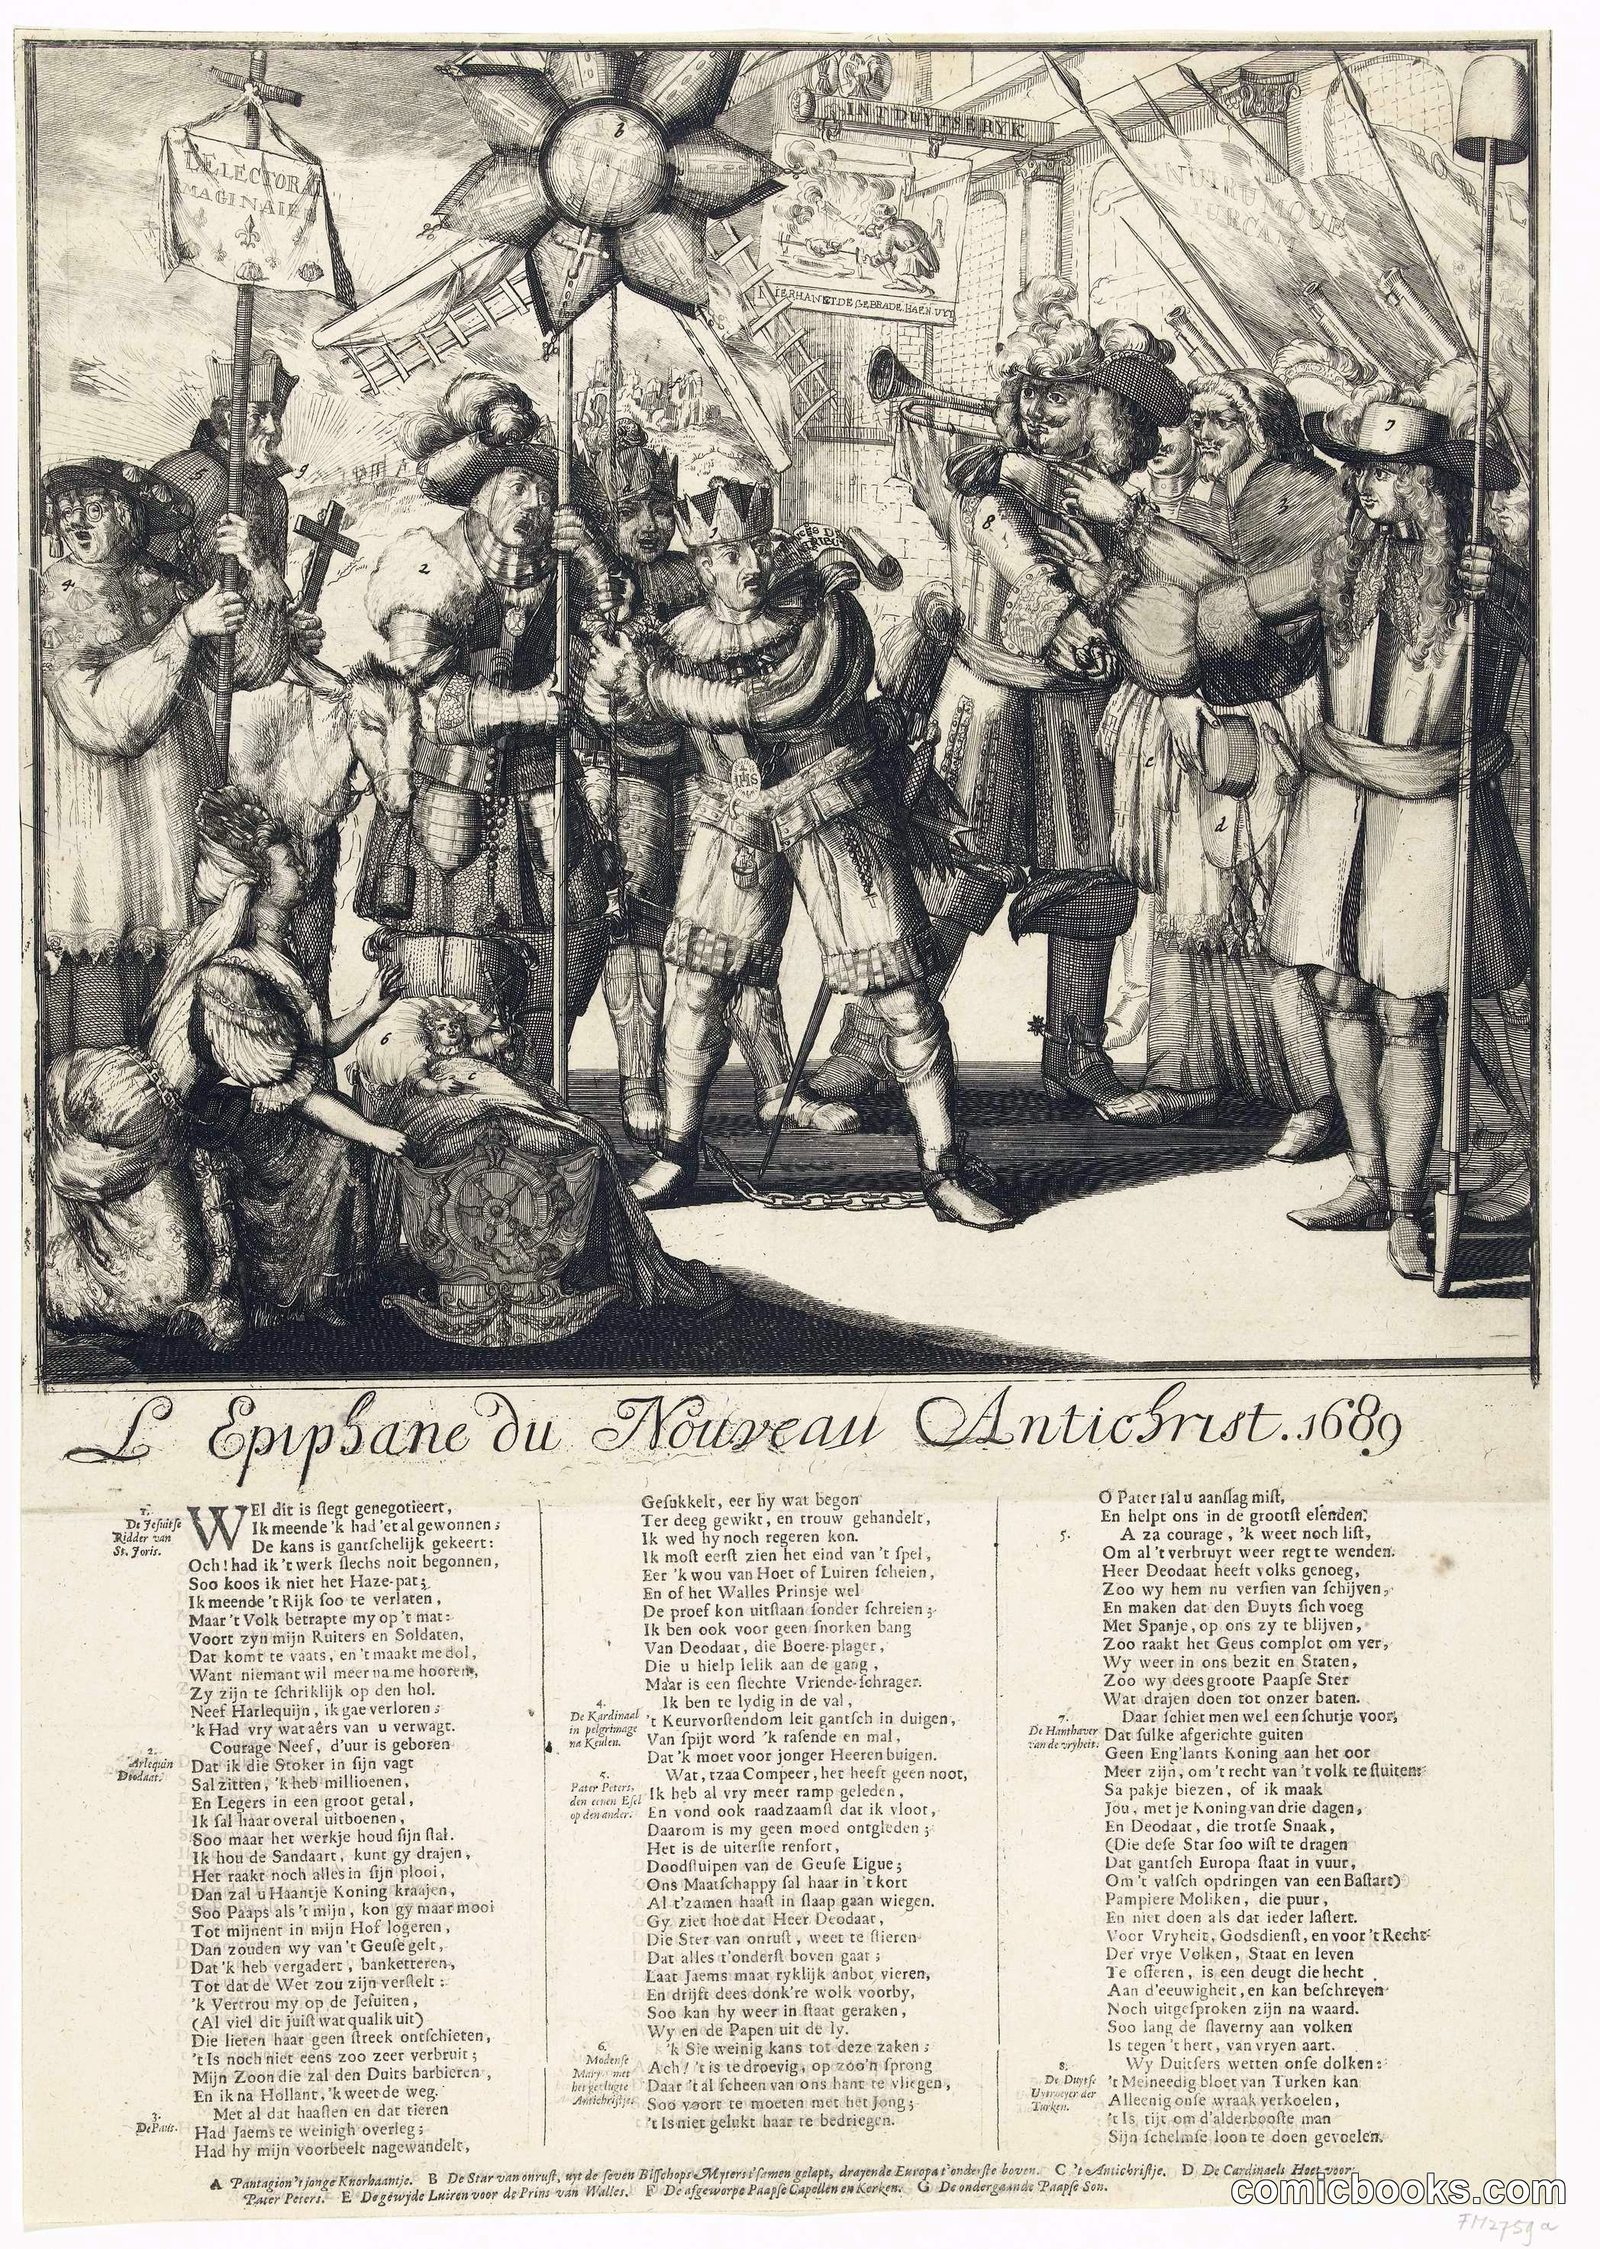 L'ELECTORAT
IMAGINAIRE
INT DUYTSE RYK
HIER HANGT DE GEBRADE HAEN UYT
TURCAM
IHS
L Epiphane du Nouveau Antichrist. 1689
1.
De Jesuitse
Ridder van
St. Joris.
WEl dit is slegt genegotieert,
Ik meende 'k had 'et al gewonnen;
De kans is gantschelijk gekeert:
Och! had ik 't werk slechs noit begonnen,
Soo koos ik niet het Haze-pat;
Ik meende 't Rijk soo te verlaten,
Maar 't Volk betrapte my op 't mat:
Voort zyn mijn Ruiters en Soldaten,
Dat komt te vaats, en 't maakt me dol,
Want niemant wil meer na me hooren,
Zy zijn te schriklijk op den hol.
Neef Harlequijn, ik gae verloren;
'k Had vry wat aêrs van u verwagt.
2.
Arlequin
Deodaat.
Courage Neef, d'uur is geboren
Dat ik die Stoker in sijn vagt
Sal zitten, 'k heb millioenen,
En Legers in een groot getal,
Ik sal haar overal uitboenen,
Soo maar het werkje houd sijn stal.
Ik hou de Sandaart, kunt gy drajen,
Het raakt noch alles in sijn plooi,
Dan zal u Haantje Koning kraajen,
Soo Paaps als 't mijn, kon gy maar mooi
Tot mijnent in mijn Hof logeren,
Dan zouden wy van 't Geuse gelt,
Dat 'k heb vergadert, banketteren,
Tot dat de Wet zou zijn verstelt:
'k Vertrou my op de Jesuiten,
(Al viel dit juist wat qualik uit)
Die lieten haar geen streek ontschieten,
't Is noch niet eens zoo zeer verbruit;
Mijn Zoon die zal den Duits barbieren,
En ik na Hollant, 'k weet de weg.
3.
De Paus.
Met al dat haasten en dat tieren
Had Jaems te weinigh overleg;
Had hy mijn voorbeelt nagewandelt,
Gesukkelt, eer hy wat begon
Ter deeg gewikt, en trouw gehandelt,
Ik wed hy noch regeren kon.
Ik most eerst zien het eind van 't spel,
Eer 'k wou van Hoet of Luiren scheien,
En of het Walles Prinsje wel
De proef kon uitstaan sonder schreien;
Ik ben ook voor geen snorken bang
Van Deodaat, die Boere-plager,
Die u hielp lelik aan de gang,
Maar is een slechte Vriende-schrager.
4.
De Kardinaal
in pelgrimage
na Keulen.
Ik ben te lydig in de val,
't Keurvorstendom leit gantsch in duigen,
Van spijt word 'k rasende en mal,
Dat 'k moet voor jonger Heeren buigen.
5.
Pater Peters,
den eenen Esel
op den ander.
Wat, tzaa Compeer, het heeft geen noot,
Ik heb al vry meer ramp geleden,
En vond ook raadzaamst dat ik vloot,
Daarom is my geen moed ontgleden;
Het is de uiterste renfort,
Doodstuipen van de Geuse Ligue;
Ons Maatschappy sal haar in 't kort
Al t'zamen haast in slaap gaan wiegen.
Gy ziet hoe dat Heer Deodaat,
Die Ster van onrust, weet te stieren
Dat alles t'onderst boven gaat;
Laat Jaems maar ryklijk anbot vieren,
En drijft dees donk're wolk voorby,
Soo kan hy weer in staat geraken,
Wy en de Papen uit de ly.
6.
Modense
Mary, met
het gevlugte
Antichristje.
'k Sie weinig kans tot deze zaken;
Ach! 't is te droevig, op zoo'n sprong
Daar 't al scheen van ons hant te vliegen,
Soo voort te moeten met het Jong;
't Is niet gelukt haar te bedriegen.
O Pater! al u aanslag mist,
En helpt ons in de grootst elenden.
5.
A za courage, 'k weet noch list,
Om al 't verbruyt weer regt te wenden.
Heer Deodaat heeft volks genoeg,
Zoo wy hem nu versien van schijven,
En maken dat den Duyts sich voeg
Met Spanje, op ons zy te blijven,
Zoo raakt het Geus complot om ver,
Wy weer in ons bezit en Staten,
Zoo wy dees groote Paapse Ster
Wat drajen doen tot onzer baten.
7.
De Hanthaver
van de vryheit.
Daar schiet men wel een schutje voor,
Dat sulke afgerichte guiten
Geen Eng'lants Koning aan het oor
Meer zijn, om 't recht van 't volk te sluiten:
Sa pakje biezen, of ik maak
Jou, met je Koning van drie dagen,
En Deodaat, die trotse Snaak,
(Die dese Star soo wist te dragen
Dat gantsch Europa staat in vuur,
Om 't valsch opdringen van een Bastart)
Pampiere Moliken, die puur,
En niet doen als dat ieder lastert.
Voor Vryheit, Godsdienst, en voor 't Recht
Der vrye Volken, Staat en leven
Te offeren, is een deugt die hecht
Aan d'eeuwigheit, en kan beschreven
Noch uitgesproken zijn na waard.
Soo lang de slaverny aan volken
Is tegen 't hert, van vryen aart.
8.
De Duytse
Uytroeyer der
Turken.
Wy Duitsers wetten onse dolken:
't Meineedig bloet van Turken kan
Alleenig onse wraak verkoelen,
't Is tijt om d'alderbooste man
Sijn schelmse loon te doen gevoelen.
A Pantagion 't jonge Knorhaantje. B De Star van onrust, uyt de seven Bisschops Myters t'samen gelapt, drayende Europa t'onderste boven. C 't Antichristje. D De Cardinaels Hoet voor
Pater Peters. E De gewyde Luiren voor de Prins van Walles. F De afgeworpe Paapse Capellen en Kerken. G De ondergaande Paapse Son.
comicbooks.com
FM2759a